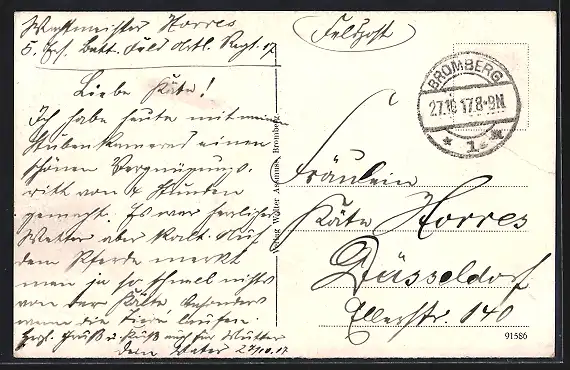 Wachtmeister Horres
5. Ers. Batt. Feld Artl. Regt. 17
Feldpost
BROMBERG
27.10.17.8-9N
* 1 *
Liebe Käte!
Ich habe heute mit meinem
Stubenkamerad einen
schönen Vergnügungs-
ritt von 4 Stunden
gemacht. Es war herrliches
Wetter aber kalt. Auf
dem Pferde merkt
man ja so schnell nichts
von der Kälte besonders
wenn die Tiere laufen.
Herzl. Gruß u. Kuß auch für Mutter
Dein Vater 27/10.17
Verlag Walter Assmus, Bromberg
Fräulein
Käte Horres
Düsseldorf
Ellerstr. 140
91586